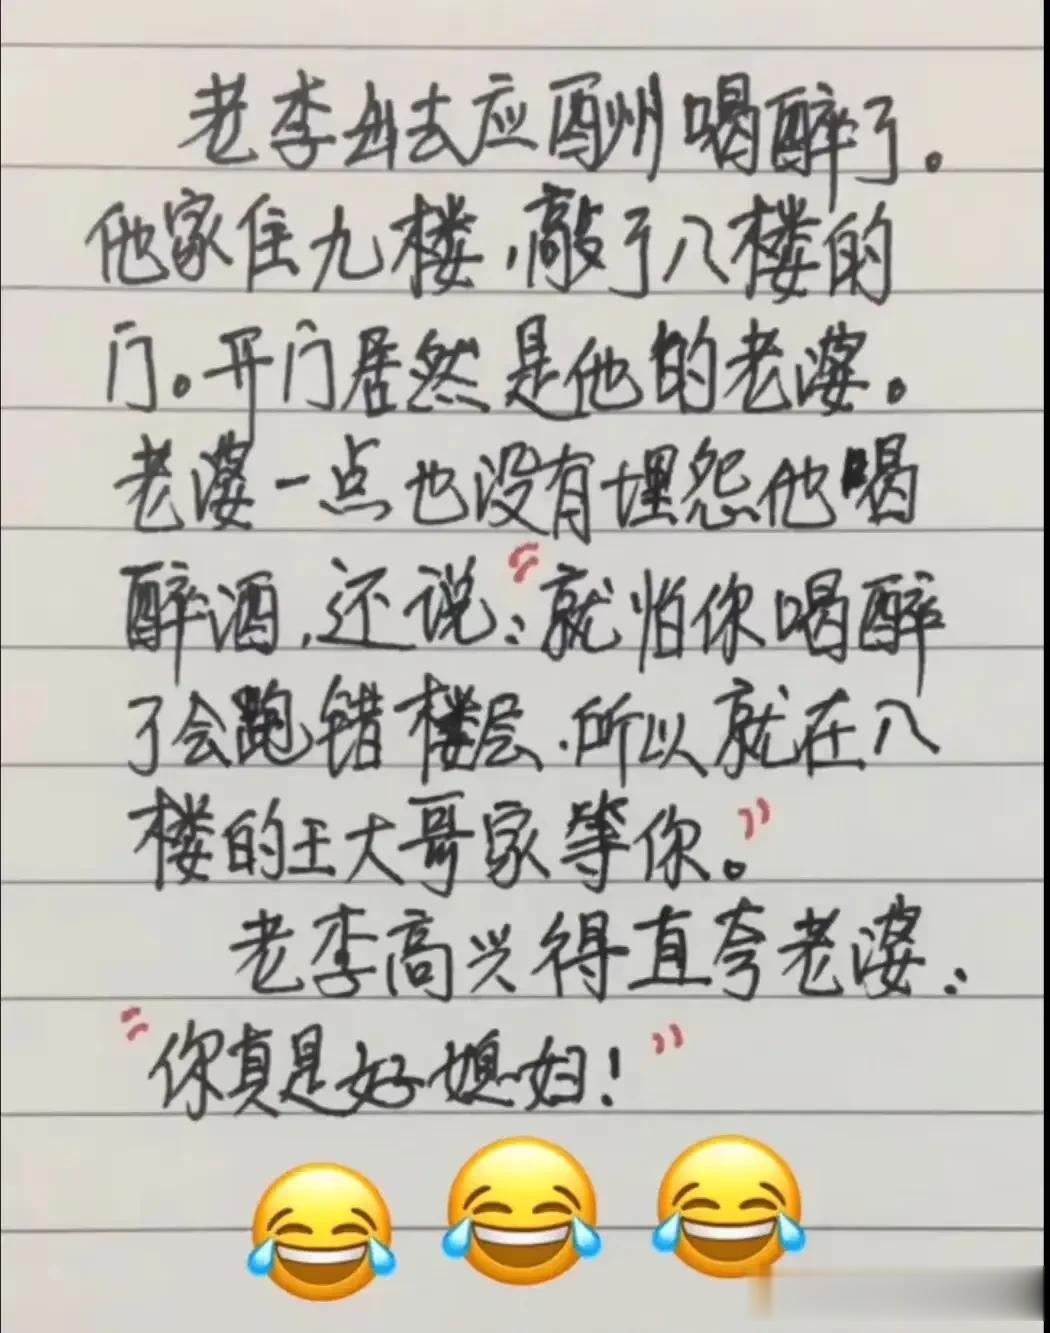 老李出去应酬喝醉了。
他家住九楼,敲了八楼的
门。开门居然是他的老婆。
老婆一点也没有埋怨他喝
醉酒,还说:“就怕你喝醉
了会跑错楼层.所以就在八
楼的王大哥家等你。”
老李高兴得直夸老婆:
“你真是好媳妇!”